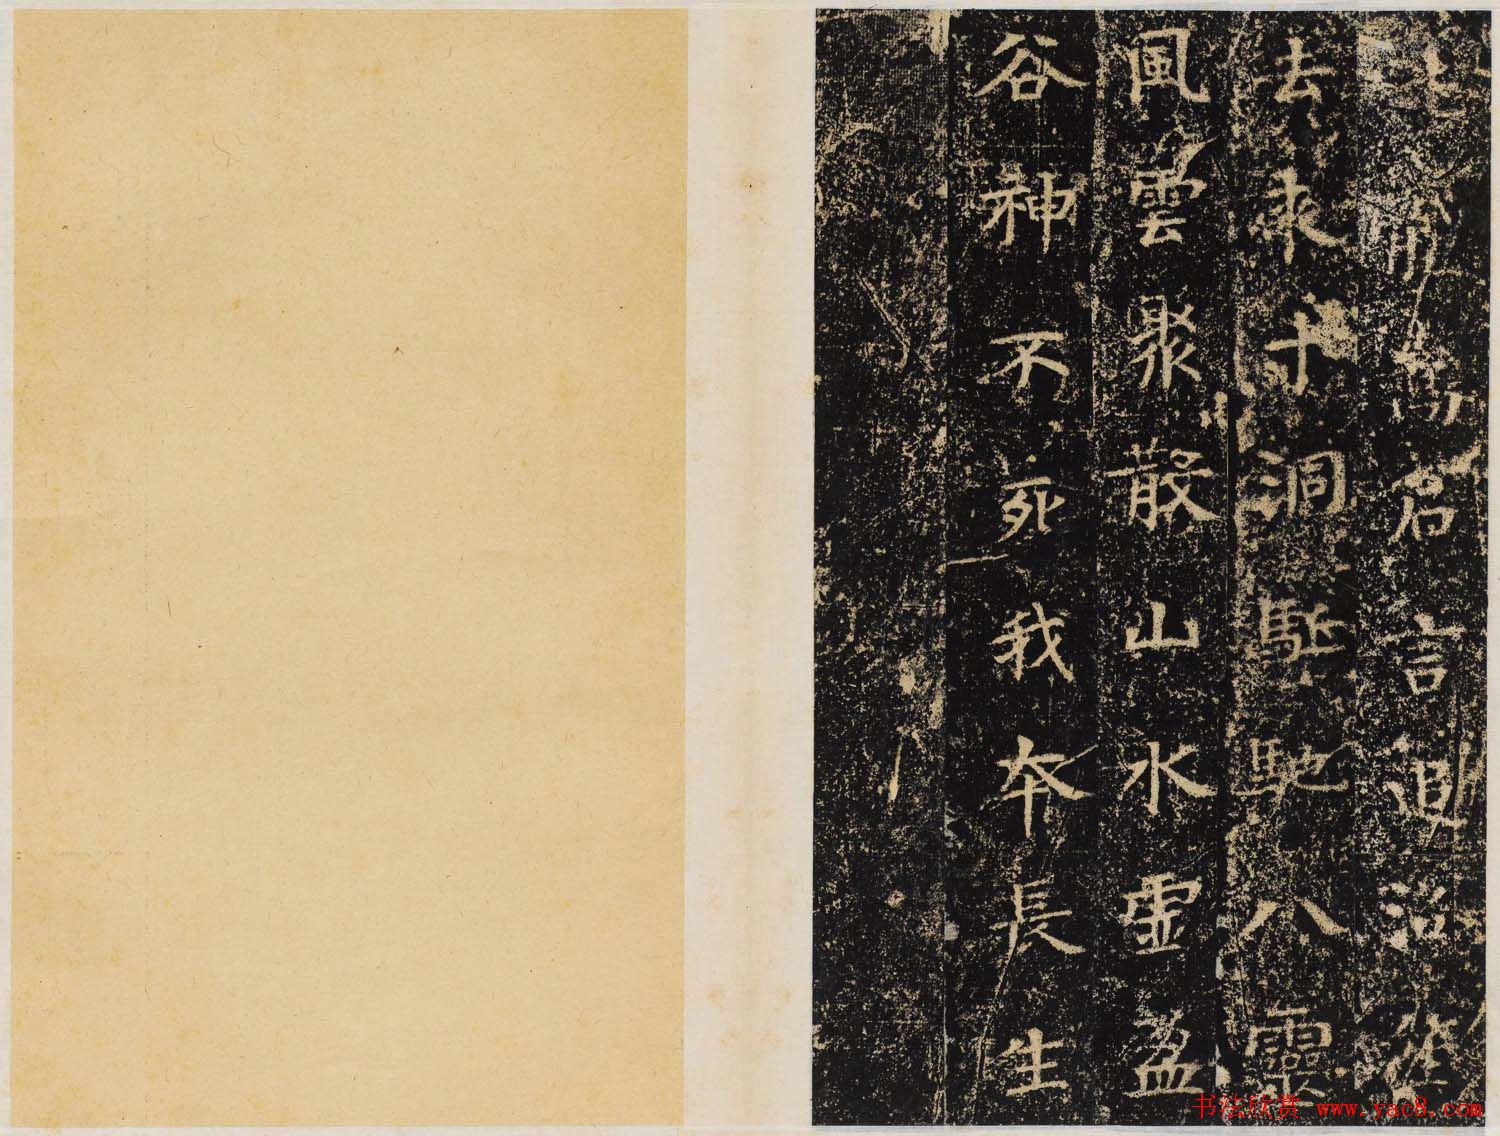 名言退沿
去來寸洞駈馳八靈
風雲聚散山水虛盈
谷神不死我夲長生
书法欣赏 www.yac8.com